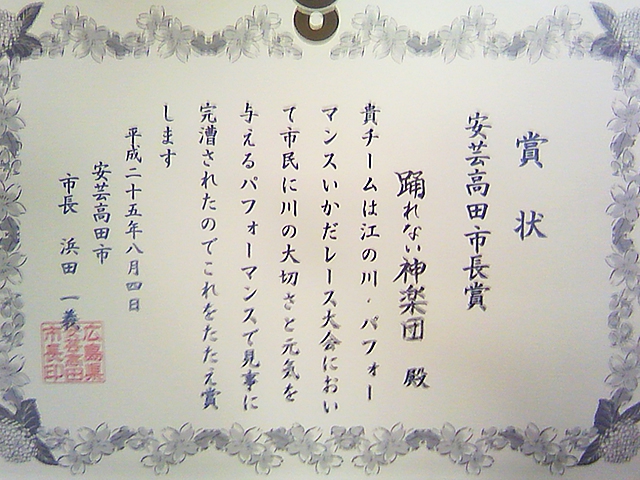 賞状
安芸高田市長賞
踊れない神楽団 殿
貴チームは江の川・パフォー
マンスいかだレース大会におい
て市民に川の大切さと元気を
与えるパフォーマンスで見事に
完漕されたのでこれをたたえ賞
します
平成二十五年八月四日
安芸高田市
市長 浜田 一義
広島県
安芸高田
市長印